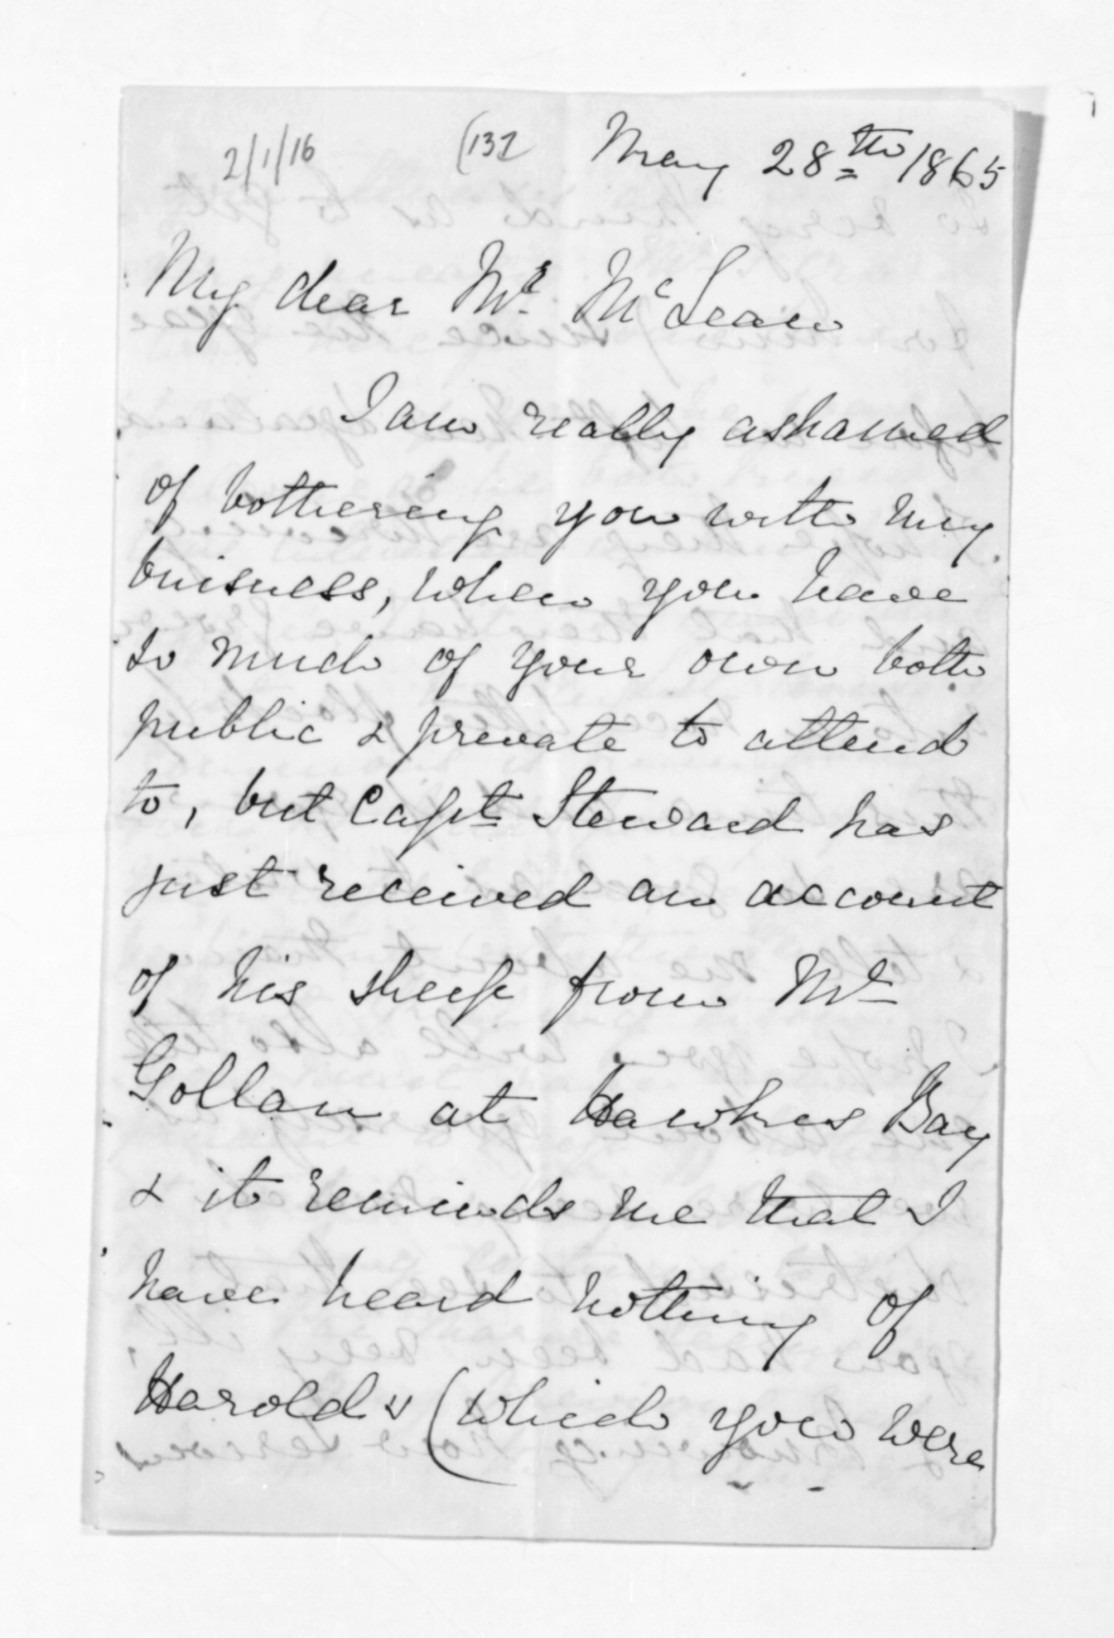 2/1/16 (132 May 28th 1865
My dear Mr. McLean
I am really ashamed
of bothering you with my
buisness, when you have
so much of your own both
public & private to attend
to, but Capt Steward has
just received an account
of his sheep from Mr
Gollan at Hawkes Bay
& it reminds me that I
have heard nothing of
Harolds (which you were